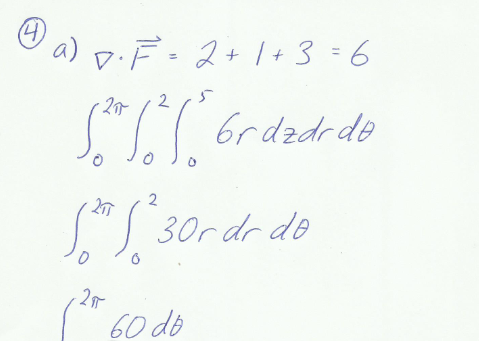 ④ a) ∇·F⃗ = 2 + 1 + 3 = 6
∫₀^{2π} ∫₀^{2} ∫₀^{5} 6r dz dr dθ
∫₀^{2π} ∫₀^{2} 30r dr dθ
∫^{2π} 60 dθ